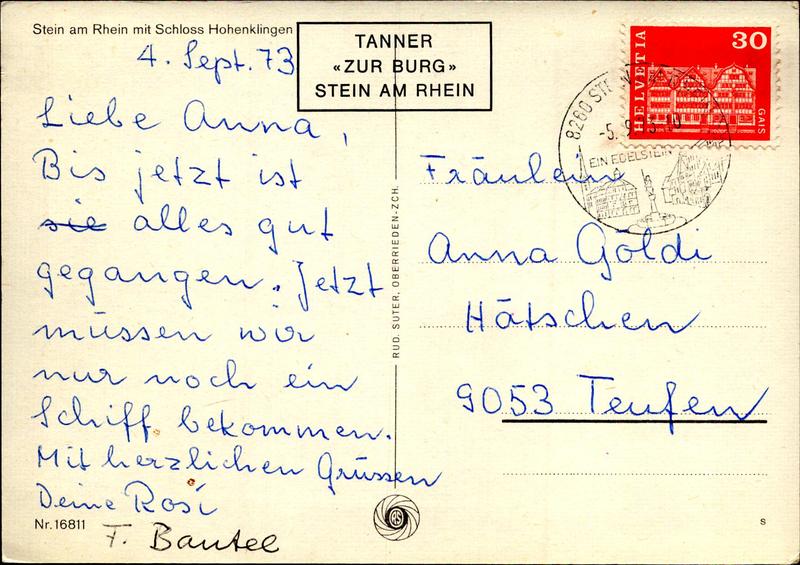 Stein am Rhein mit Schloss Hohenklingen
TANNER
«ZUR BURG»
STEIN AM RHEIN
4. Sept. 73
Liebe Anna,
Bis jetzt ist
sie alles gut
gegangen. Jetzt
müssen wir
nur noch ein
Schiff bekommen.
Mit herzlichen Grüssen
Deine Rosi
Nr. 16811
F. Bautel
RUD. SUTER, OBERRIEDEN-ZCH.
RS
HELVETIA
30
GAIS
8260
EIN EDELSTEIN
Fräulein
Anna Göldi
Hätschen
9053 Teufen
s